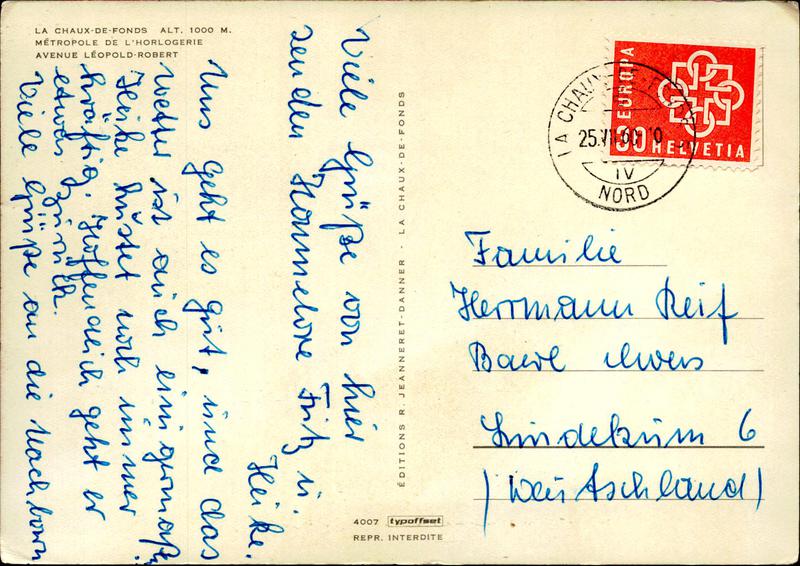 LA CHAUX-DE-FONDS ALT. 1000 M.
MÉTROPOLE DE L'HORLOGERIE
AVENUE LÉOPOLD-ROBERT
Viele Grüße von hier
senden Hannelore Fritz u.
Heike.
Uns geht es gut, und das
Wetter ist auch einigermaßen.
Heike hustet noch immer
kräftig. Hoffentlich geht er
etwas zurück.
Viele Grüße an die Nachbarn
ÉDITIONS R. JEANNERET-DANNER · LA CHAUX-DE-FONDS
4007 typoffset
REPR. INTERDITE
EUROPA
50 HELVETIA
LA CHAUX-DE-FONDS
25.VII.60 10
IV
NORD
Familie
Herrmann Reif
6
(Deutschland)